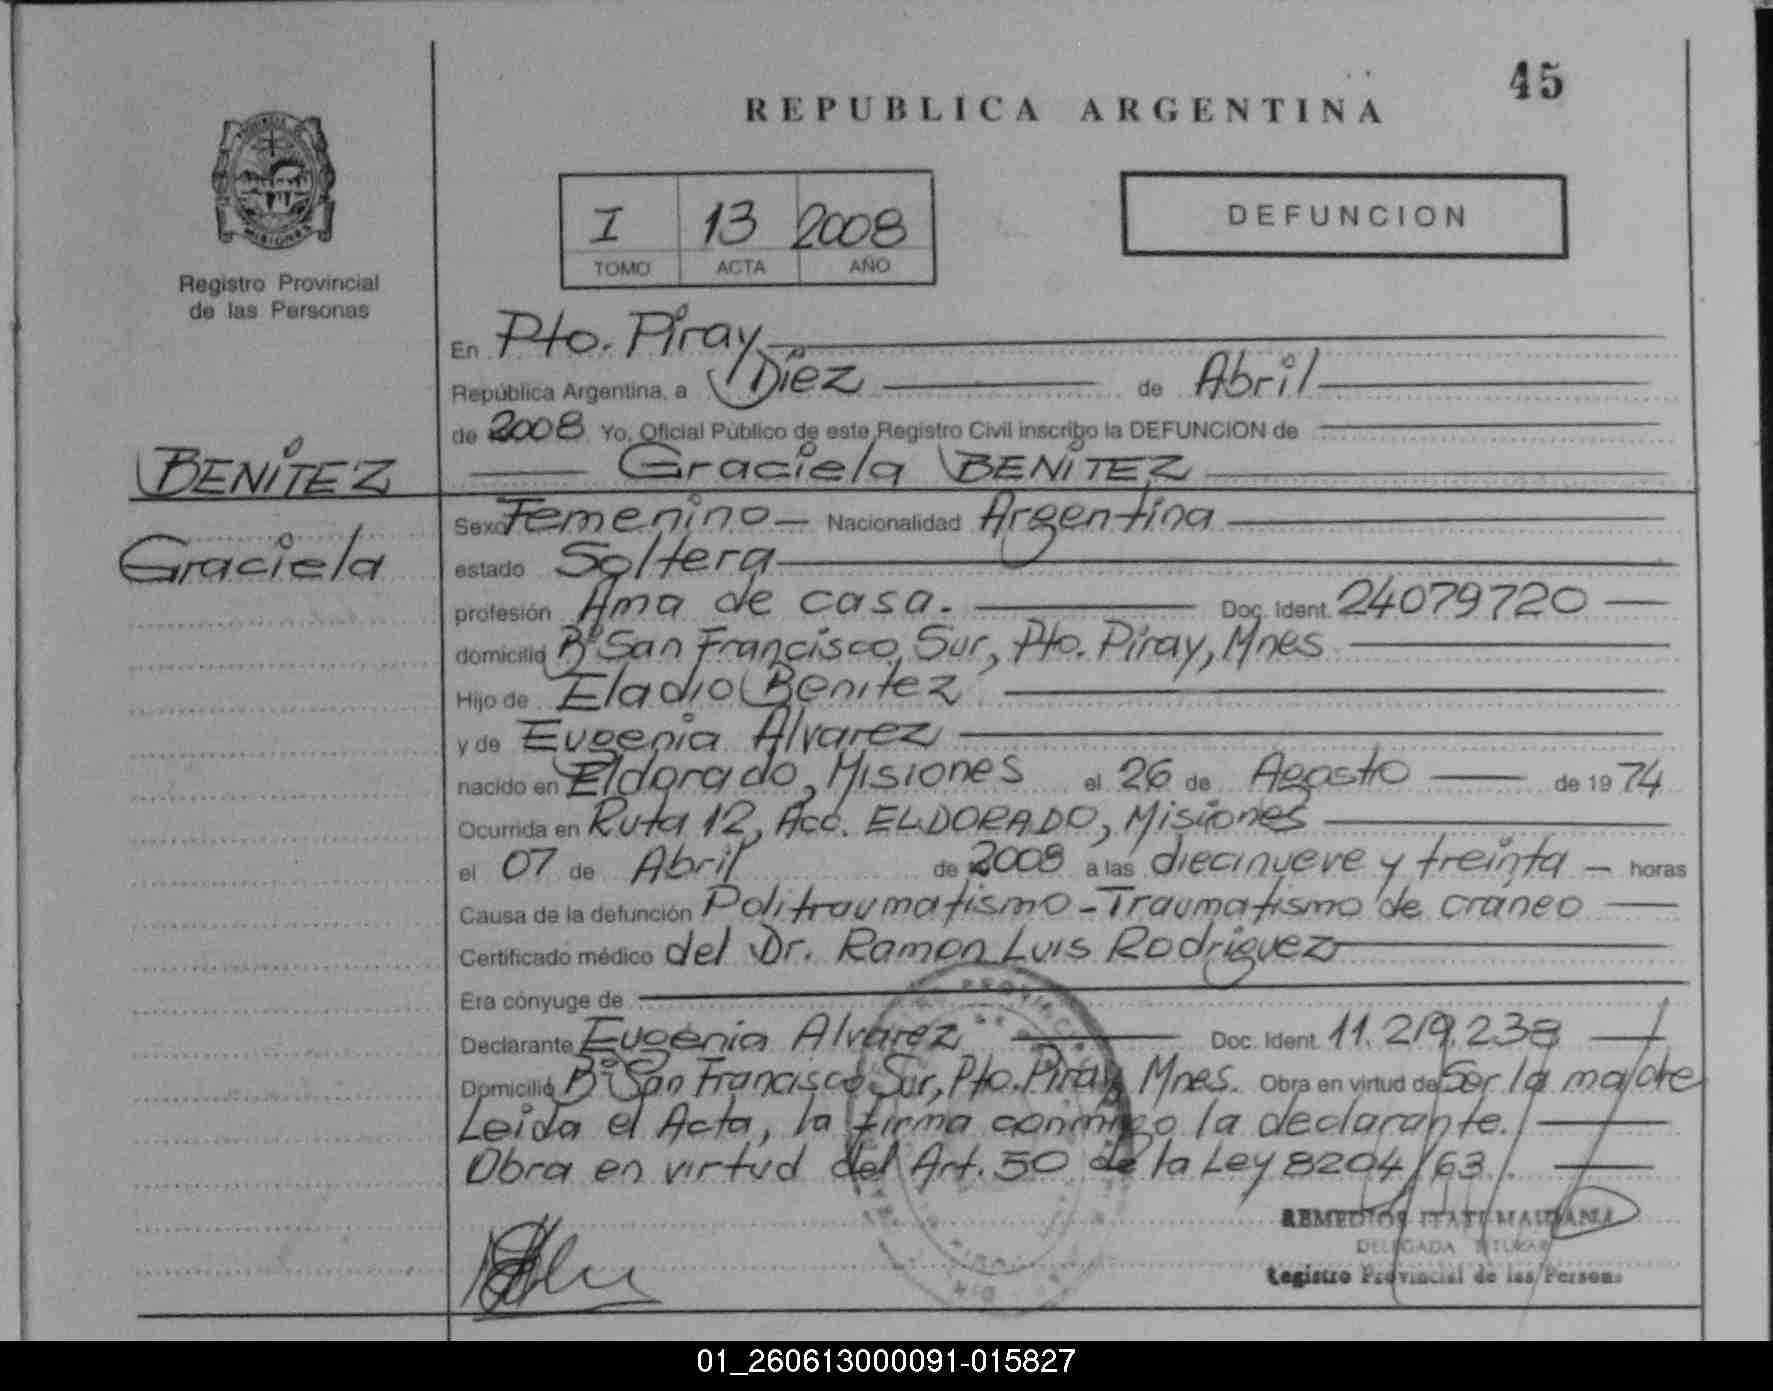 45
REPUBLICA ARGENTINA
MISIONES
Registro Provincial
de las Personas
I 13 2008
TOMO ACTA AÑO
DEFUNCION
En Pto. Piray
República Argentina, a Diez de Abril
de 2008 Yo, Oficial Público de este Registro Civil inscribo la DEFUNCION de
Graciela BENITEZ
BENITEZ
Graciela
Sexo Femenino Nacionalidad Argentina
estado Soltera
profesión Ama de casa. Doc. Ident. 24079720
domicilio Bº San Francisco Sur, Pto. Piray, Mnes
Hijo de Eladio Benitez
y de Eugenia Alvarez
nacido en Eldorado, Misiones el 26 de Agosto de 1974
Ocurrida en Ruta 12, Acc. ELDORADO, Misiones
el 07 de Abril de 2008 a las diecinueve y treinta horas
Causa de la defunción Politraumatismo - Traumatismo de cráneo
Certificado médico del Dr. Ramon Luis Rodriguez
Era cónyuge de
Declarante Eugenia Alvarez Doc. Ident. 11.219.238
Domicilio Bº San Francisco Sur, Pto. Piray Mnes. Obra en virtud de Ser la madre
Leida el Acta, la firma conmigo la declarante.
Obra en virtud del Art. 50 de la Ley 8204/63.
REMEDIOS ITATI MAIDANA
DELEGADA TITULAR
Registro Provincial de las Personas
01_260613000091-015827